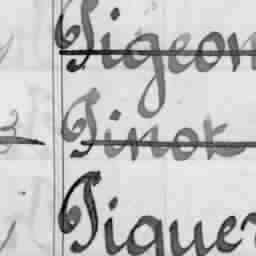 Pigeon
Pinot
Piquer